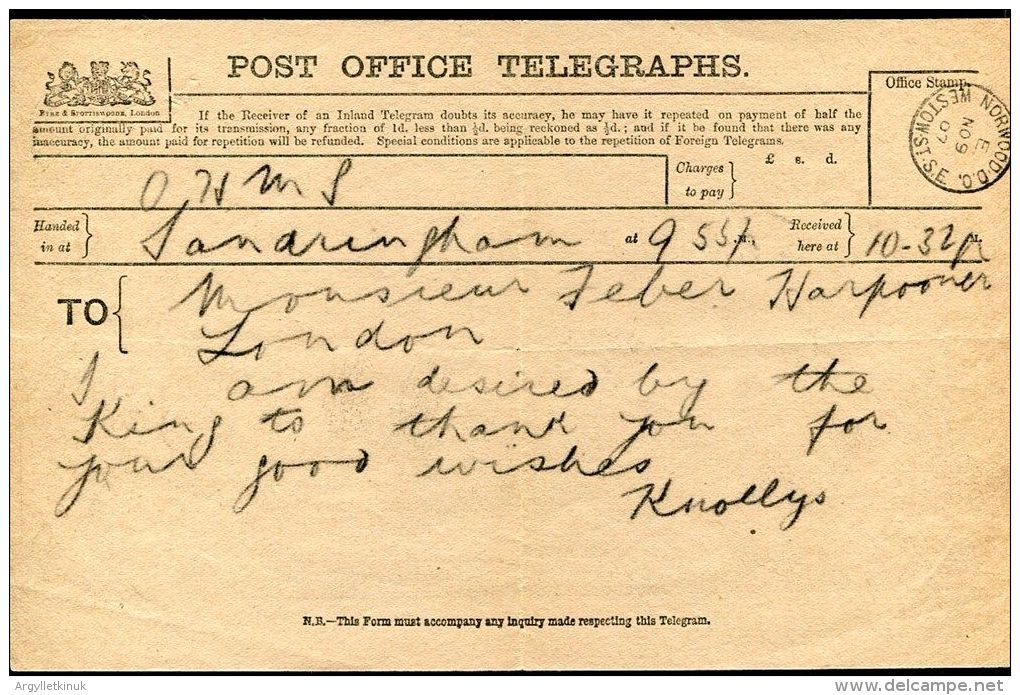 POST OFFICE TELEGRAPHS.
EYRE & SPOTTISWOODE, LONDON
If the Receiver of an Inland Telegram doubts its accuracy, he may have it repeated on payment of half the
amount originally paid for its transmission, any fraction of 1d. less than ½d. being reckoned as ½d.; and if it be found that there was any
inaccuracy, the amount paid for repetition will be refunded. Special conditions are applicable to the repetition of Foreign Telegrams.
Office Stamp.
WEST NORWOOD.D.O.
WESTOW ST. S.E.
E
NO 9
07
O H M S
Charges to pay
£ s. d.
Handed in at
Sandringham
at
9 55 p
M.,
Received here at
10-32 p
M.
TO
Monsieur Feber Harpooner
London
I am desired by the
King to thank you for
your good wishes
Knollys
N.B.—This Form must accompany any inquiry made respecting this Telegram.
Argylletkinuk
www.delcampe.net